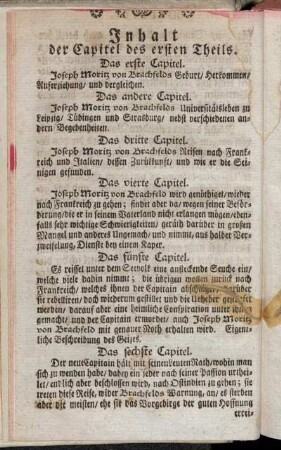 Inhalt
der Capitel des ersten Theils.
Das erste Capitel.
Joseph Moritz von Brachfelds Geburt/ Herkommen/
Auferziehung/ und dergleichen.
Das andere Capitel.
Joseph Moritz von Brachfelds Universitätsleben zu
Leipzig/ Tübingen und Straßburg/ nebst verschiedenen an-
dern Begebenheiten.
Das dritte Capitel.
Joseph Moritz von Brachfelds Reisen nach Frank-
reich und Italien/ dessen Zurükkunft/ und wie er die Sei-
nigen gefunden.
Das vierte Capitel.
Joseph Moritz von Brachfeld wird genöthiget/ wieder
nach Frankreich zu gehen; findet aber da/ wegen seiner Beför-
derung/ die er in seinem Vaterland nicht erlangen mögen/ eben-
fals sehr wichtige Schwierigkeiten; geräth darüber in großen
Mangel und anderes Ungemach/ und nimmt/ aus halber Ver-
zweifelung/ Dienste bey einem Kaper.
Das fünfte Capitel.
Es reisset unter dem Seevolk eine anstekende Seuche ein/
welche viele dahin nimmt; die übrigen wollen zurück nach
Frankreich/ welches ihnen der Capitain abschläget/ darüber
sie rebelliren/ doch wiederum gestillet und die Urheber
werden/ darauf aber eine heimliche Conspiration unter ihnen
gemacht/ und der Capitain ermordet/ auch Joseph Moritz
von Brachfeld mit genauer Noth erhalten wird. Eigent-
liche Beschreibung des Geizes.
Das sechste Capitel.
Der neue Capitain hält mit seinen Leuten Rath/ wohin man
sich zu wenden habe/ dabey ein jeder nach seiner Passion urthei-
let/ endlich aber beschlossen wird/ nach Ostindien zu gehen; sie
treten diese Reise/ wider Brachfelds Warnung/ an/ es sterben
aber die meisten/ ehe sie das Vorgebirge der guten Hoffnung
errei-